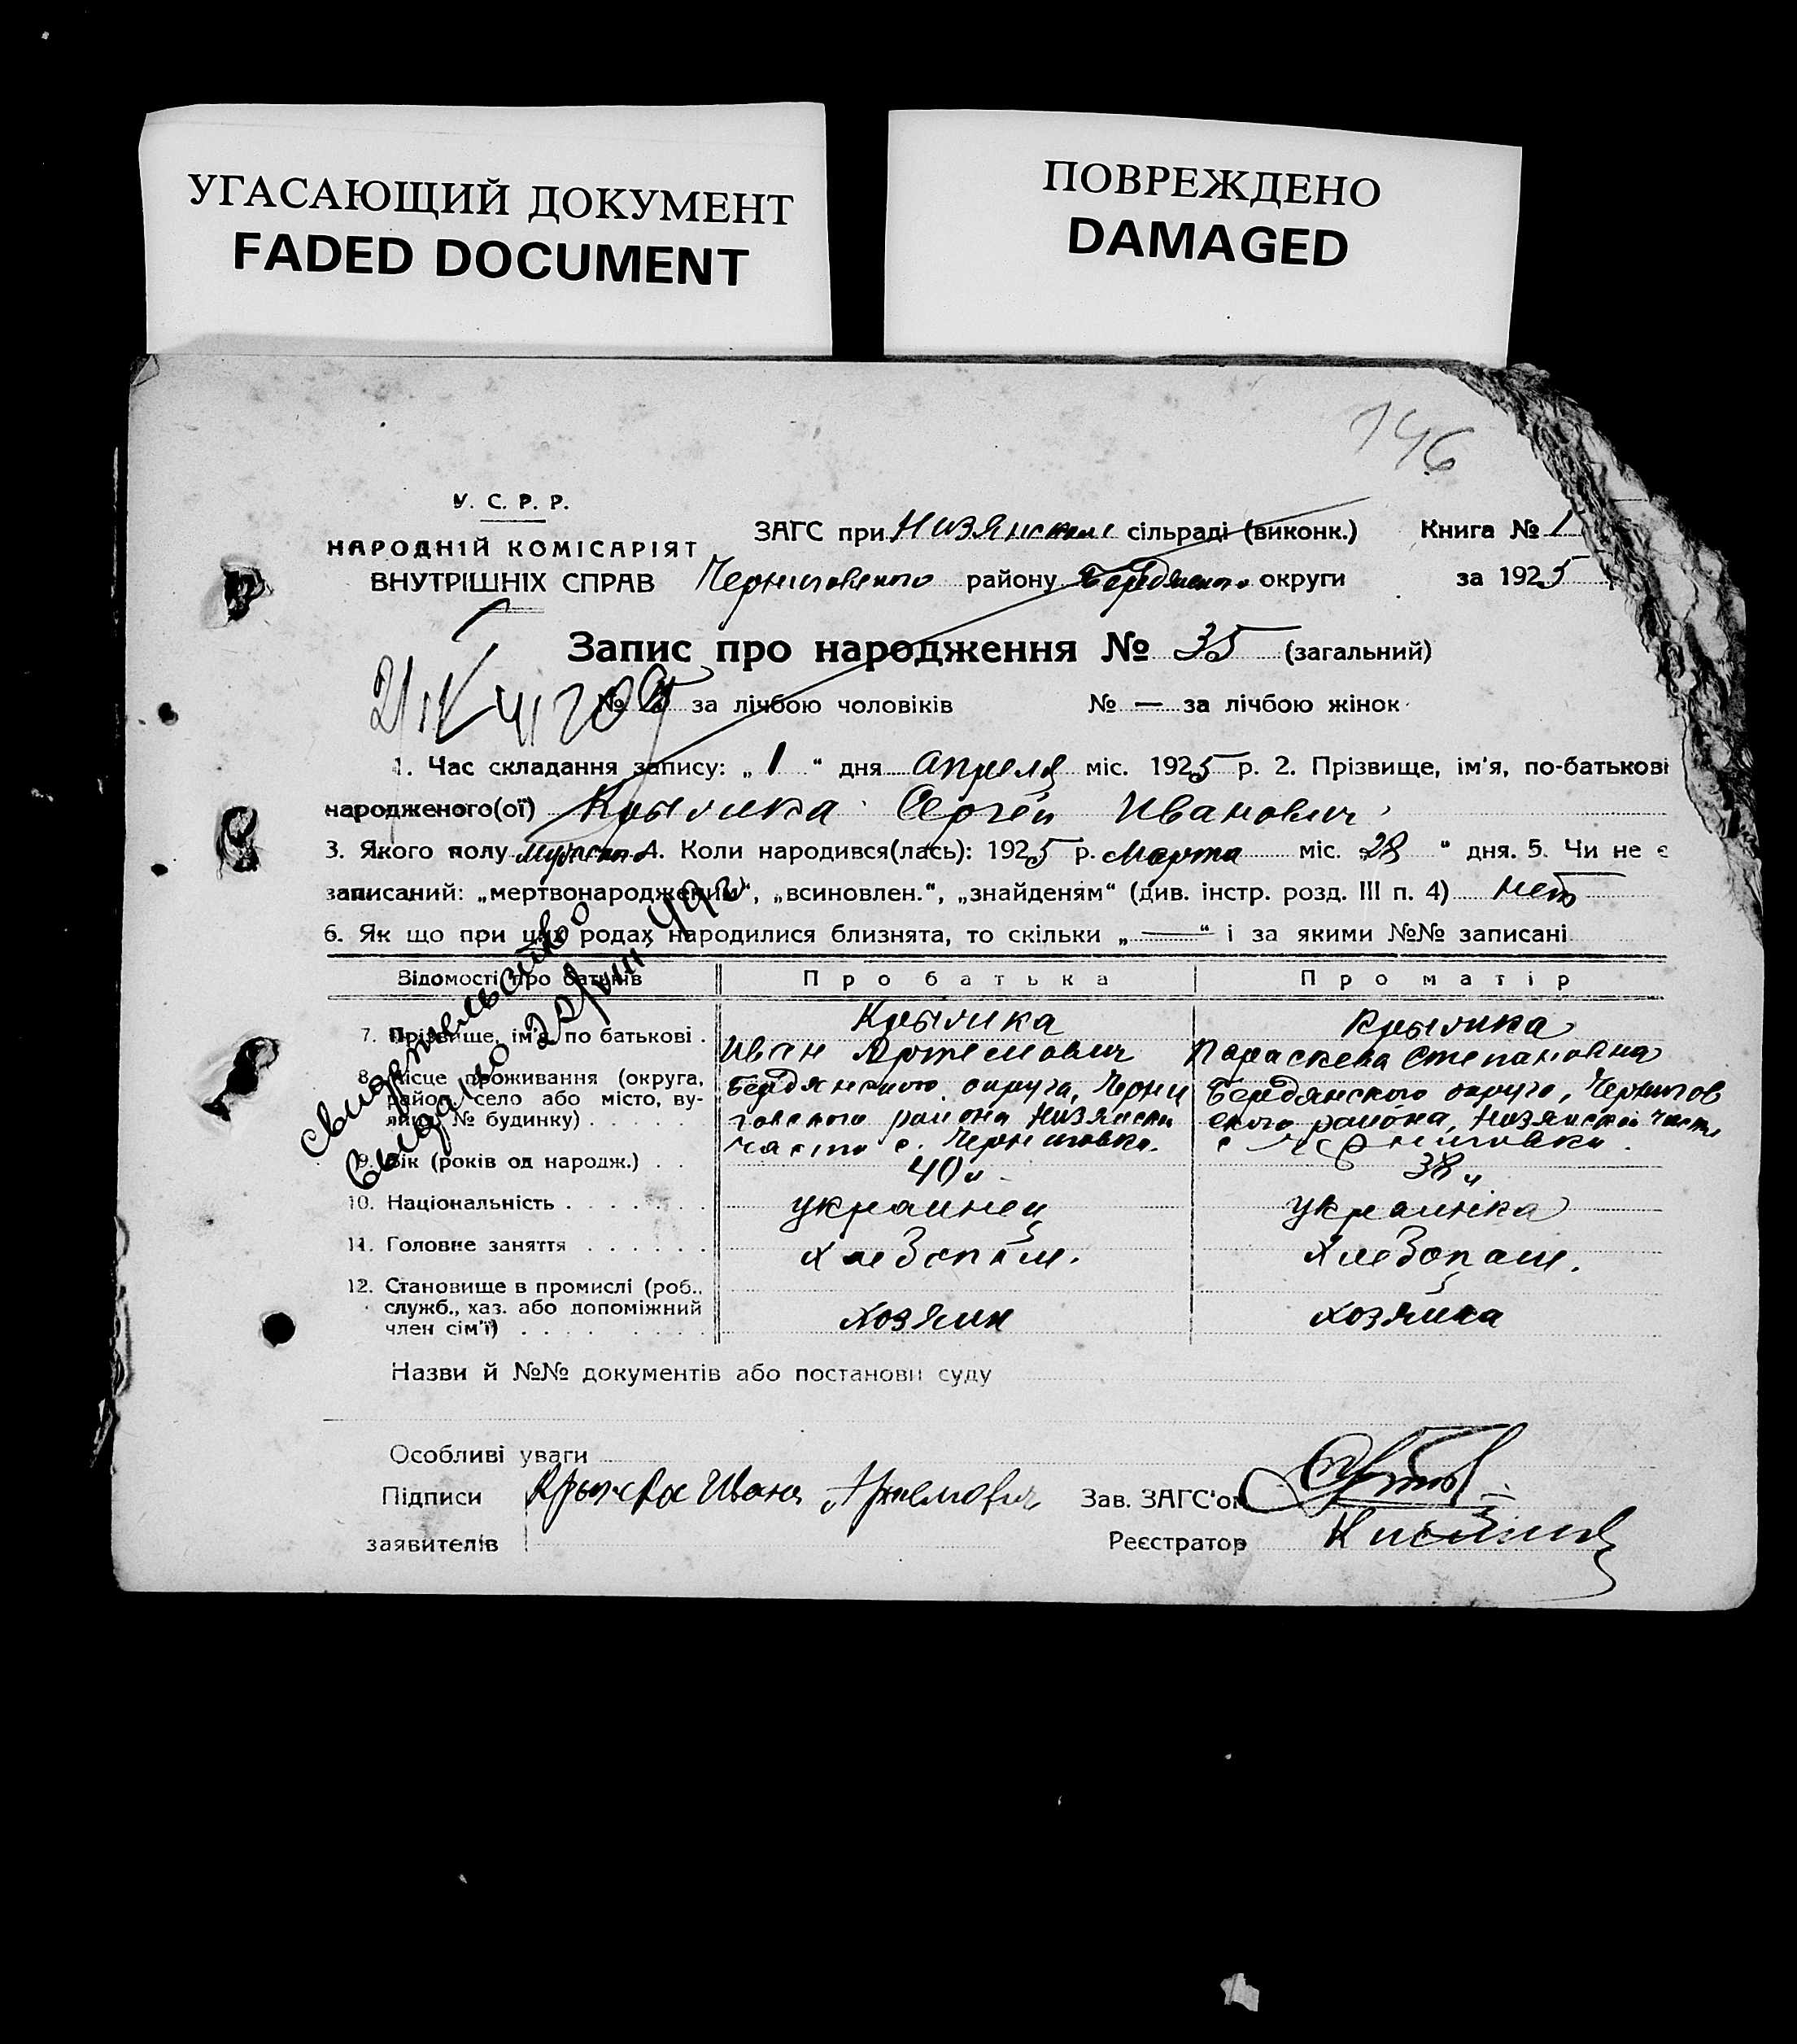 УГАСАЮЩИЙ ДОКУМЕНТ
FADED DOCUMENT
ПОВРЕЖДЕНО
DAMAGED
146
У. С. Р. Р.
НАРОДНІЙ КОМІСАРІЯТ
ВНУТРІШНІХ СПРАВ
ЗАГС при Низянском сільраді (виконк.) Книга № 1
Черниговского району Бердянского округи за 1925
Запис про народження № 35 (загальний)
№ за лічбою чоловіків № — за лічбою жінок
1. Час складання запису: „ 1 “ дня апреля міс. 1925 р. 2. Прізвище, ім'я, по-батькові
народженого(ої) Крыжка Сергей Иванович
3. Якого полу мужского 4. Коли народився(лась): 1925 р. марта міс. 28 “ дня. 5. Чи не є
записаний: „мертвонародженим“, „всиновлен.“, „знайденям“ (див. інстр. розд. III п. 4) нет
6. Як що при цих родах народилися близнята, то скільки „ — “ і за якими №№ записані
Свидетельство
выдано
Відомості про батьків Про батька Про матір
7. Прізвище, ім'я, по батькові . Крыжка Иван Артемович Крыжка Параскева Степановна
8. Місце проживання (округа, район, село або місто, вулиця, № будинку) . . . . . Бердянского округа, Черниговского района Низянской части с. Черниговка. Бердянского округа, Черниговского района, Низянской части с Черниговки.
9. Вік (років од народж.) . . 40 л 38 л
10. Національність . . . . . . . украинец украинка
11. Головне заняття . . . . . . хлебопаш. хлебопаш.
12. Становище в промислі (роб., служб., хаз. або допоміжний член сім'ї) . . . . хозяин хозяйка
Назви й №№ документів або постанови суду
Особливі уваги
Підписи Крыжка Иван Артемович Зав. ЗАГС'ом
заявителів Реєстратор